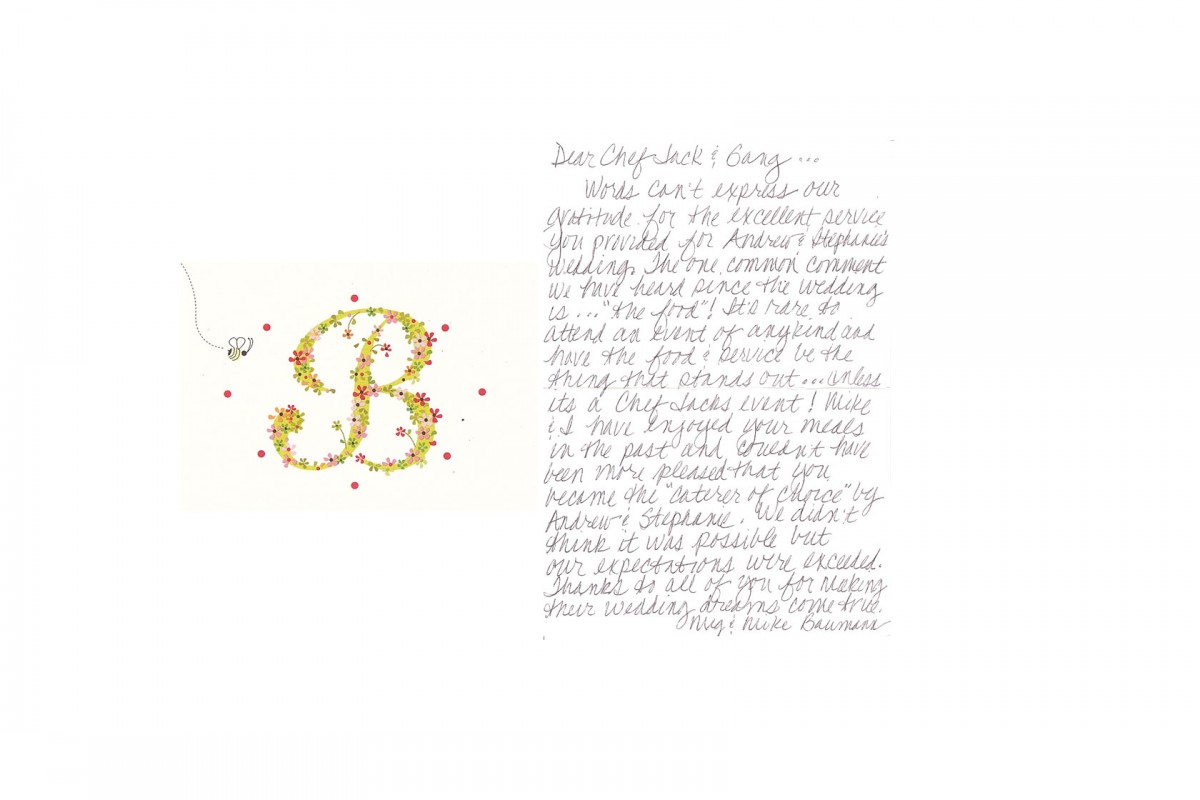 B
Dear Chef Jack & Gang ...
Words can't express our
gratitude for the excellent service
you provided for Andrew & Stephanie's
wedding. The one common comment
we have heard since the wedding
is ... "the food"! It's rare to
attend an event of any kind and
have the food & service be the
thing that stands out ... unless
its a Chef Jacks event! Mike
& I have enjoyed your meals
in the past and couldn't have
been more pleased that you
became the "caterer of choice" by
Andrew & Stephanie. We didn't
think it was possible but
our expectations were exceeded.
Thanks to all of you for making
their wedding dreams come true.
& Mike Baumann